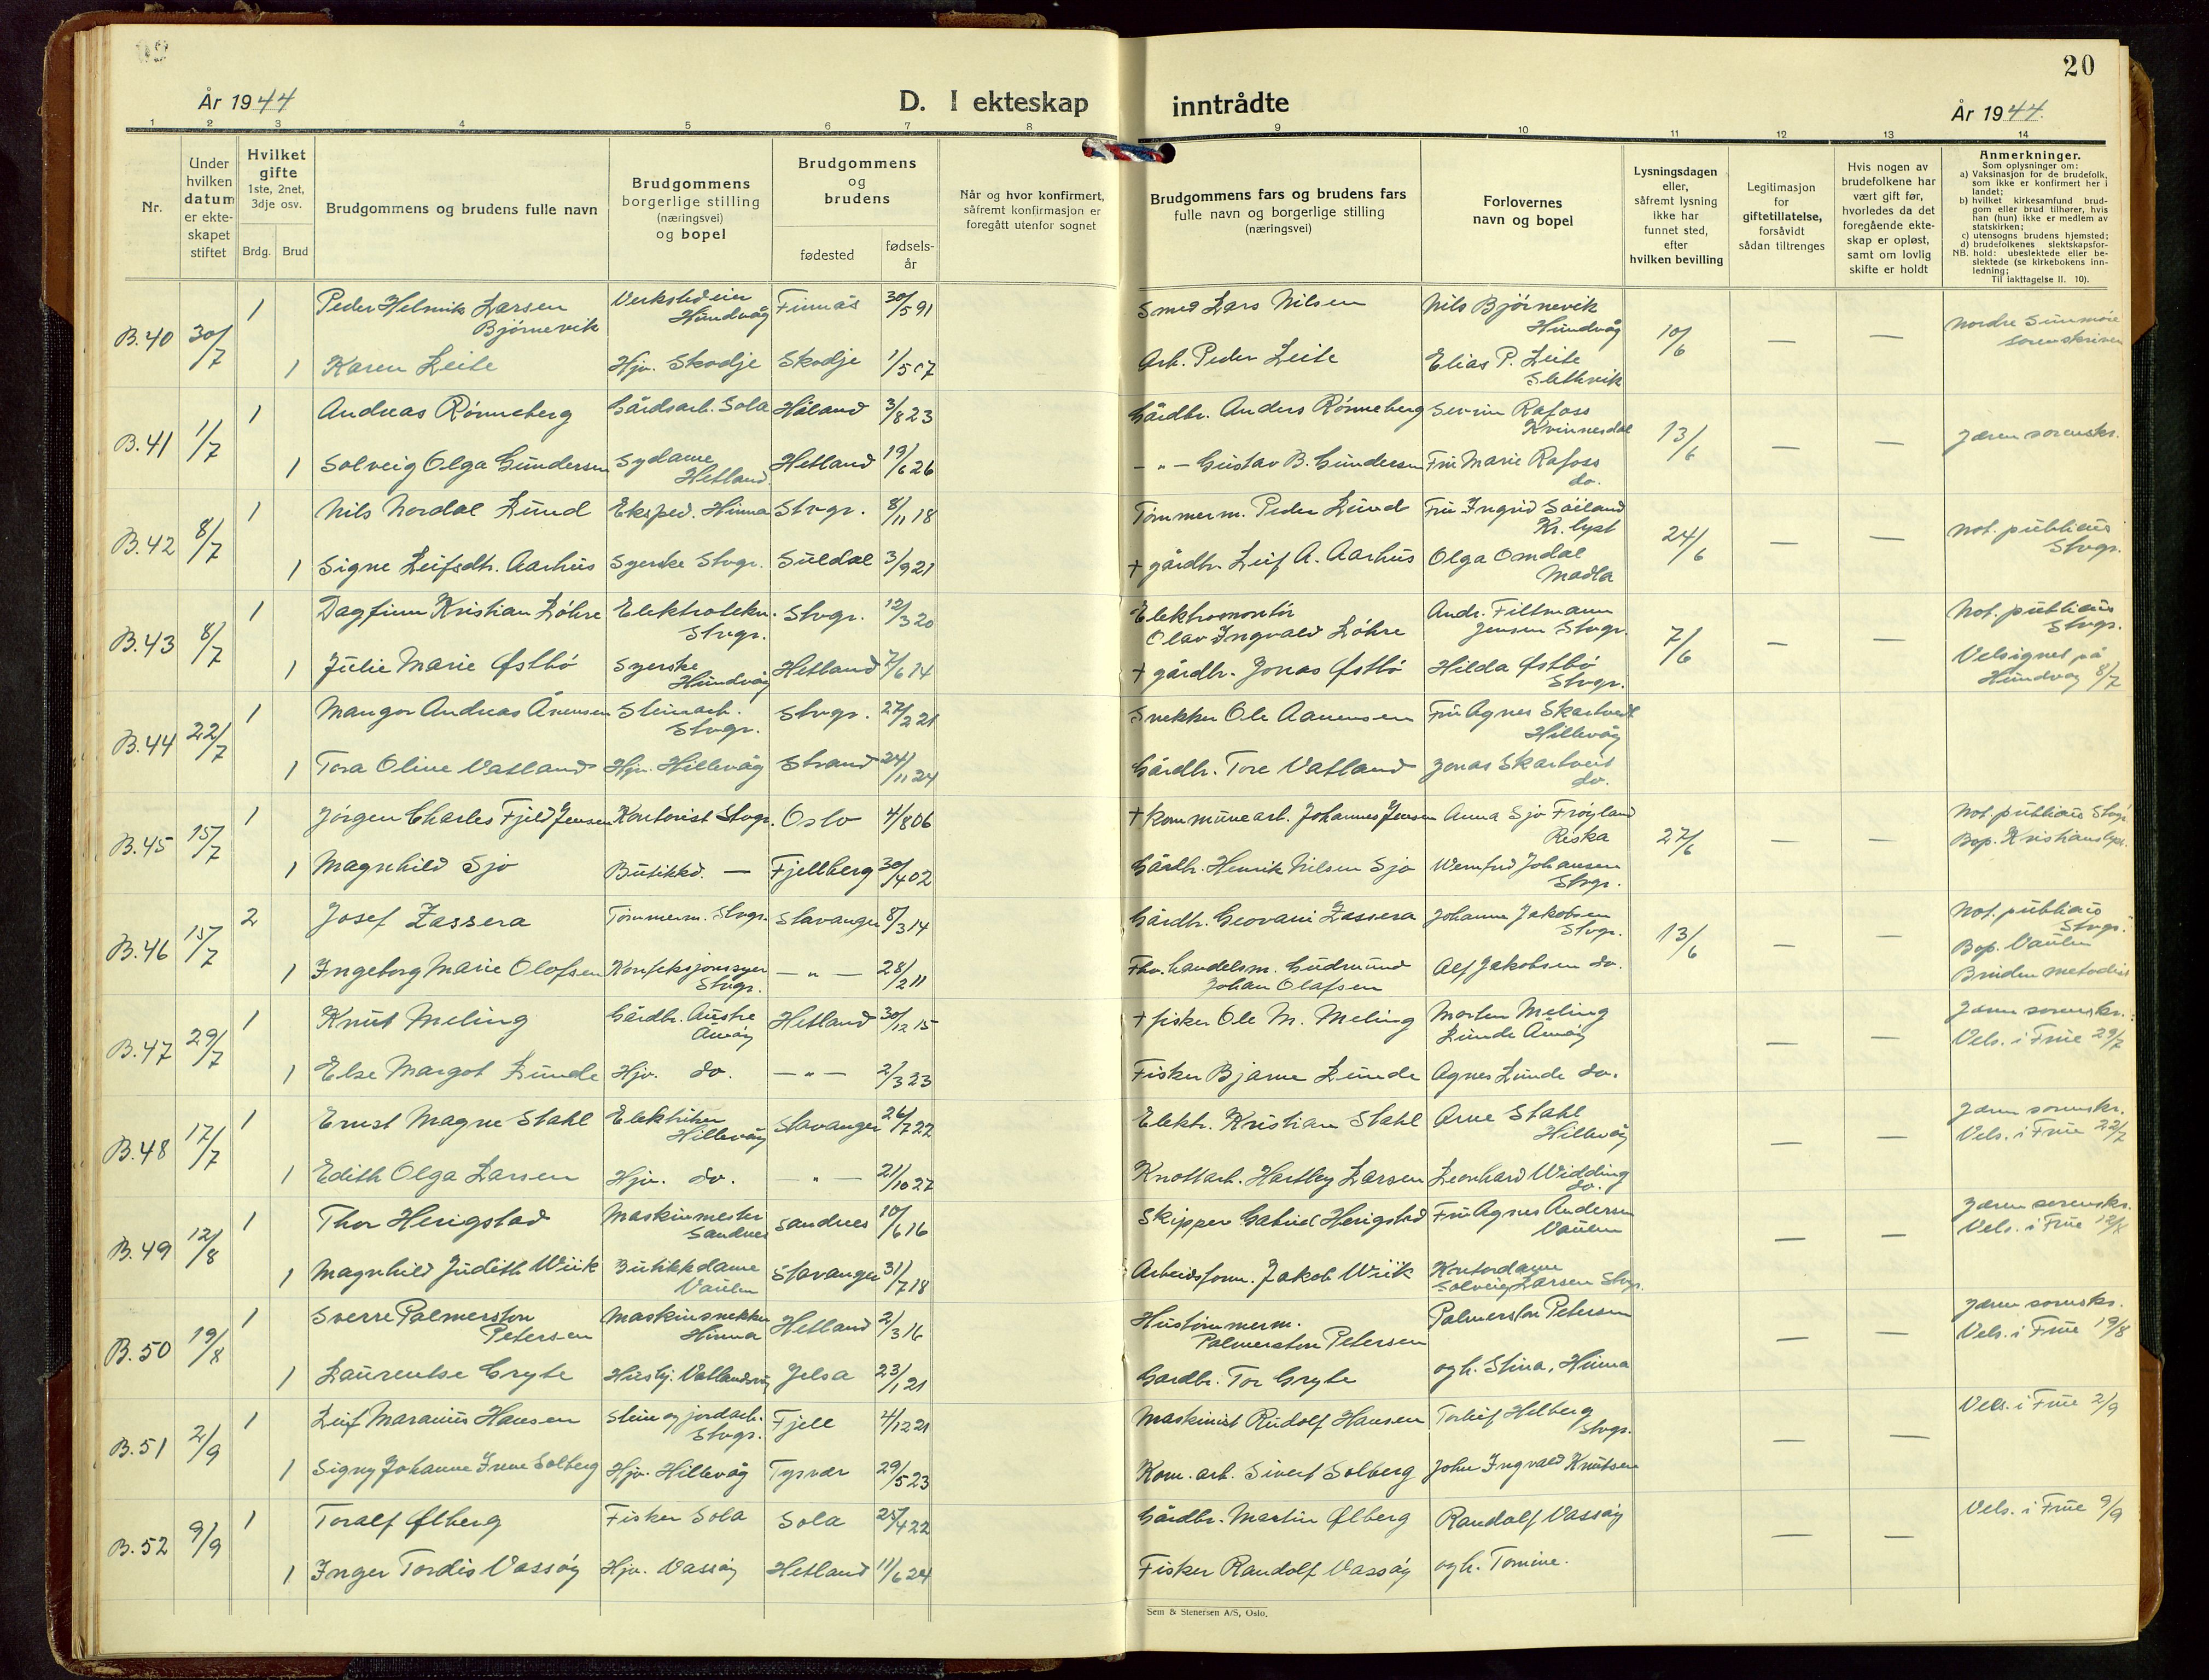 20
År 1944
D. I ekteskap inntrådte
År 1944.
1 2 3 4 5 6 7 8 9 10 11 12 13 14
Nr.
Under hvilken datum er ekteskapet stiftet
Hvilket gifte
1ste, 2net, 3dje osv.
Brdg. Brud
Brudgommens og brudens fulle navn
Brudgommens borgerlige stilling (næringsvei) og bopel
Brudgommens og brudens
fødested
fødselsår
Når og hvor konfirmert, såfremt konfirmasjon er foregått utenfor sognet
Brudgommens fars og brudens fars fulle navn og borgerlige stilling (næringsvei)
Forlovernes navn og bopel
Lysningsdagen eller, såfremt lysning ikke har funnet sted, efter hvilken bevilling
Legitimasjon for giftetillatelse, forsåvidt sådan tiltrenges
Hvis nogen av brudefolkene har vært gift før, hvorledes da det foregående ekteskap er opløst, samt om lovlig skifte er holdt
Anmerkninger.
Som oplysninger om:
a) Vaksinasjon for de brudefolk, som ikke er konfirmert her i landet;
b) hvilket kirkesamfund brudgom eller brud tilhører, hvis han (hun) ikke er medlem av statskirken;
c) utensogns brudens hjemsted;
d) brudefolkenes slektskapsforhold: ubeslektede eller beslektede (se kirkebokens innledning;
NB. Til iakttagelse II. 10).
B.40 30/7 1 Peder Helmik Larsen Bjørnevik Verkstedeier Hundvåg Finnås 30/5 91 Smed Lars Nilsen Nils Bjørnevik Hundvåg 10/6 — — Nordre Sunmøre sorenskriver
1 Karen Leite Hjv. Skodje Skodje 1/5 07 Arb. Peder Leite Elias P. Leite
B.41 1/7 1 Andreas Rønneberg Gårdsarb. Sola Håland 3/8 23 Gårdbr. Anders Rønneberg Rafoss Kvinnesdal 13/6 — — Jæren sorenskr.
1 Solveig Olga Gundersen Sydame Hetland Hetland 19/6 26 — " — Gustav B. Gundersen Fru Marie Rafoss do.
B.42 8/7 1 Nils Nordal Lund Eksped. Hinna Stvgr. 8/11 18 Tømmerm. Peder Lund Fru Ingrid Søiland Kr. lyst 24/6 — — Not. publicus Stvgr.
1 Signe Leifsdtr. Aarhus Syerske Stvgr. Suldal 3/9 21 + gårdbr. Leif A. Aarhus Olga Omdal Madla
B.43 8/7 1 Dagfinn Kristian Løhre Elektrotekn. Stvgr. Stvgr. 12/3 20 Elektromontør Olav Ingvald Løhre Andr. Filtmann Jensen Stvgr. 7/6 — — Not. publicus Stvgr.
1 Julie Marie Østbø Syerske Hundvåg Hetland 7/6 14 + gårdbr. Jonas Østbø Hilda Østbø Stvgr. Velsignet på Hundvåg 8/7
B.44 22/7 1 Mangor Andreas Ånensen Steinarb. Stvgr. Stvgr. 27/2 21 Snekker Ole Aanensen Fru Agnes Skartveit Hillevåg
1 Tora Oline Vatland Hjv. Hillevåg Strand 24/11 24 Gårdbr. Tore Vatland Jonas Skartveit do.
B.45 15/7 1 Jørgen Charles Fjeld Jensen Kontorist Stvgr. Oslo 4/8 06 + kommunearb. Johannes Jensen Anna Sjo Frøyland Riska 27/6 — — Not. publicus Stvgr.
1 Magnhild Sjo Butikkd. — Fjellberg 30/4 02 Gårdbr. Henrik Nilsen Sjo Johansen Stvgr. Bop. Kristianslyst.
B.46 15/7 2 Josef Zassera Tømmerm. Stvgr. Stavanger 8/3 14 Gårdbr. Geovani Zassera Johanne Jakobsen Stvgr. 13/6 — — Not. publicus Stvgr.
1 Ingeborg Marie Olofsen Konfeksjonssyer Stvgr. — " — 28/2 11 Fhv. handelsm. Gudmund Johan Olafsen Alf Jakobsen do. Bop. Vaulen Bruden metodist
B.47 29/7 1 Knut Meling Gårdbr. Austre Åmøy Hetland 30/12 15 + fisker Ole M. Meling Morten Meling Lunde Åmøy — — Jæren sorenskr.
1 Else Margot Lunde Hjv. do. — " — 2/3 23 Fisker Bjarne Lunde Agnes Lunde do. Vels. i Frue 29/7
B.48 17/7 1 Ernst Magne Stahl Elektriker Hillevåg Stavanger 26/7 22 Elektr. Kristian Stahl Arne Stahl Hillevåg — — Jæren sorenskr. Vels. i Frue 22/7
1 Edith Olga Larsen Hjv. do. — " — 21/10 27 Knottarb. Hartley Larsen Leonhard Widding do.
B.49 12/8 1 Thor Herigstad Maskinmester Sandnes Sandnes 10/6 16 Skipper Gabriel Herigstad Fru Agnes Andersen Vaulen — — Jæren sorenskr. Vels. i Frue 12/8
1 Magnhild Judith Wiik Butikkdame Vaulen Stavanger 31/7 18 Arbeidsform. Jakob Wiik Kontordame Solveig Larsen Stvgr.
B.50 19/8 1 Sverre Palmerston Petersen Maskinsnekker Hinna Hetland 2/3 16 Hustømmerm. Palmerston Petersen Palmerston Petersen — — Jæren sorenskr. Vels. i Frue 19/8
1 Laurentse Gryte Jelsa 23/1 21 Gardbr. Tor Gryte og h. Stina, Hinna
B.51 2/9 1 Leif Maranius Hansen Stein og jordarb. Stvgr. Fjell 4/12 21 Maskinist Rudolf Hansen Torleif Helberg Stvgr. — — Vels. i Frue 2/9
1 Signy Johanne Irene Solberg Hjv. Hillevåg Tysvær 29/5 23 Kom. arb. Sivert Solberg John Ingvald Knutsen
B.52 9/9 1 Toralf Ølberg Fisker Sola Sola 25/4 22 Gårdbr. Martin Ølberg Randolf Vassøy — — Vels. i Frue 9/9
1 Inger Tordis Vassøy Hjv. Vassøy Hetland 11/6 24 Fisker Randolf Vassøy og h. Tomine.
Sem & Stenersen A/S, Oslo.